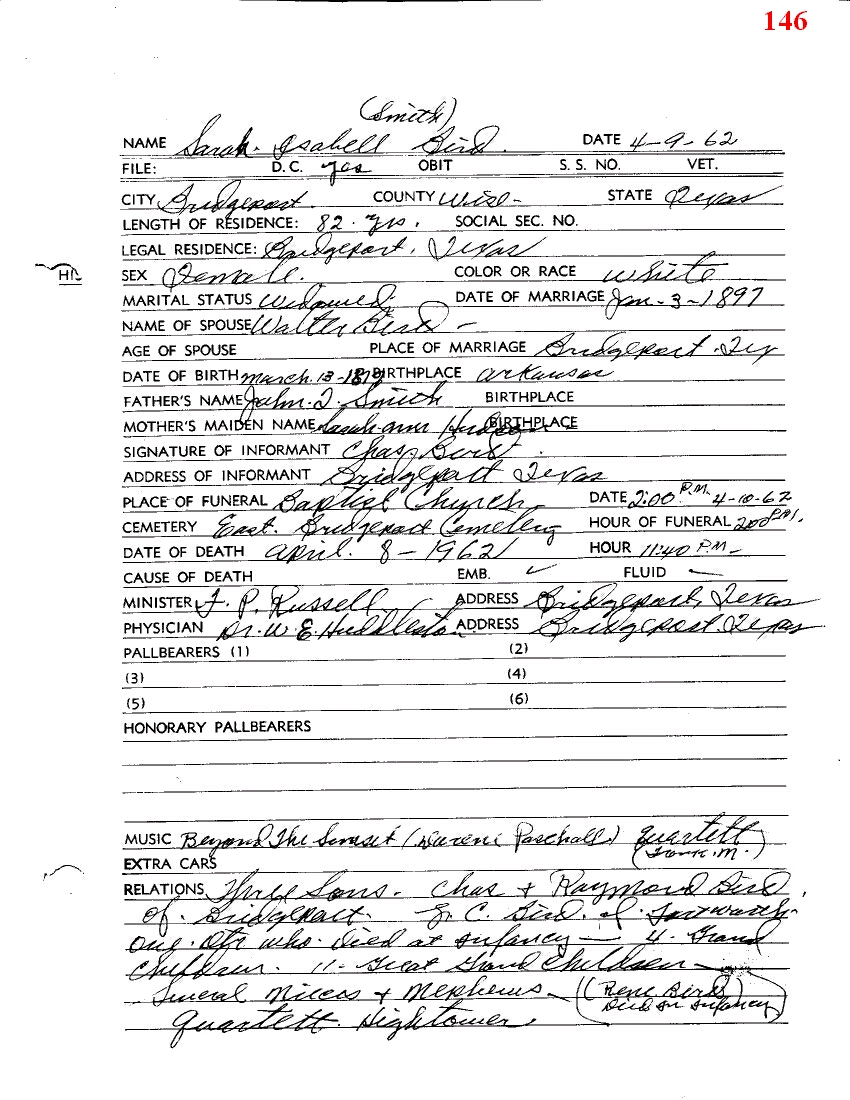 146
(Smith)
NAME Sarah. Isabell Bird. DATE 4-9-62
FILE: D.C. yes OBIT S. S. NO. VET.
CITY Bridgeport. COUNTY Wise- STATE Texas
LENGTH OF RESIDENCE: 82. yrs. SOCIAL SEC. NO.
LEGAL RESIDENCE: Bridgeport, Texas
SEX Female. COLOR OR RACE White
MARITAL STATUS Widowed DATE OF MARRIAGE Jan-3-1897
NAME OF SPOUSE Walter Bird -
AGE OF SPOUSE PLACE OF MARRIAGE Bridgeport. Tex
DATE OF BIRTH March. 13- BIRTHPLACE Arkansas
FATHER'S NAME John. T. Smith BIRTHPLACE
MOTHER'S MAIDEN NAME Sarah Ann BIRTHPLACE
SIGNATURE OF INFORMANT Chas Bird
ADDRESS OF INFORMANT Bridgeport Texas
PLACE OF FUNERAL Baptist Church DATE 2:00 P.M. 4-10-62
CEMETERY East. Bridgeport Cemetery HOUR OF FUNERAL 2:00 P.M.
DATE OF DEATH April. 8-1962 HOUR 11:40 P.M-
CAUSE OF DEATH EMB. ✓ FLUID -
MINISTER F. P. Russell ADDRESS Bridgeport, Texas
PHYSICIAN Dr. W. E. Huddleston ADDRESS Bridgeport, Texas
PALLBEARERS (1) (2)
(3) (4)
(5) (6)
HONORARY PALLBEARERS
MUSIC Beyond The Sunset (Paschall) Quartett
EXTRA CARS
RELATIONS Three Sons. Chas + Raymond Bird,
of. Bridgeport. C. Bird. of Fort Worth-
One. Dtr who. died at infancy — 4. Grand
Children. 11- Great Grand Children-
Several Nieces + Nephews- (Rene Bird
Died in infancy)
Quartett. Hightower